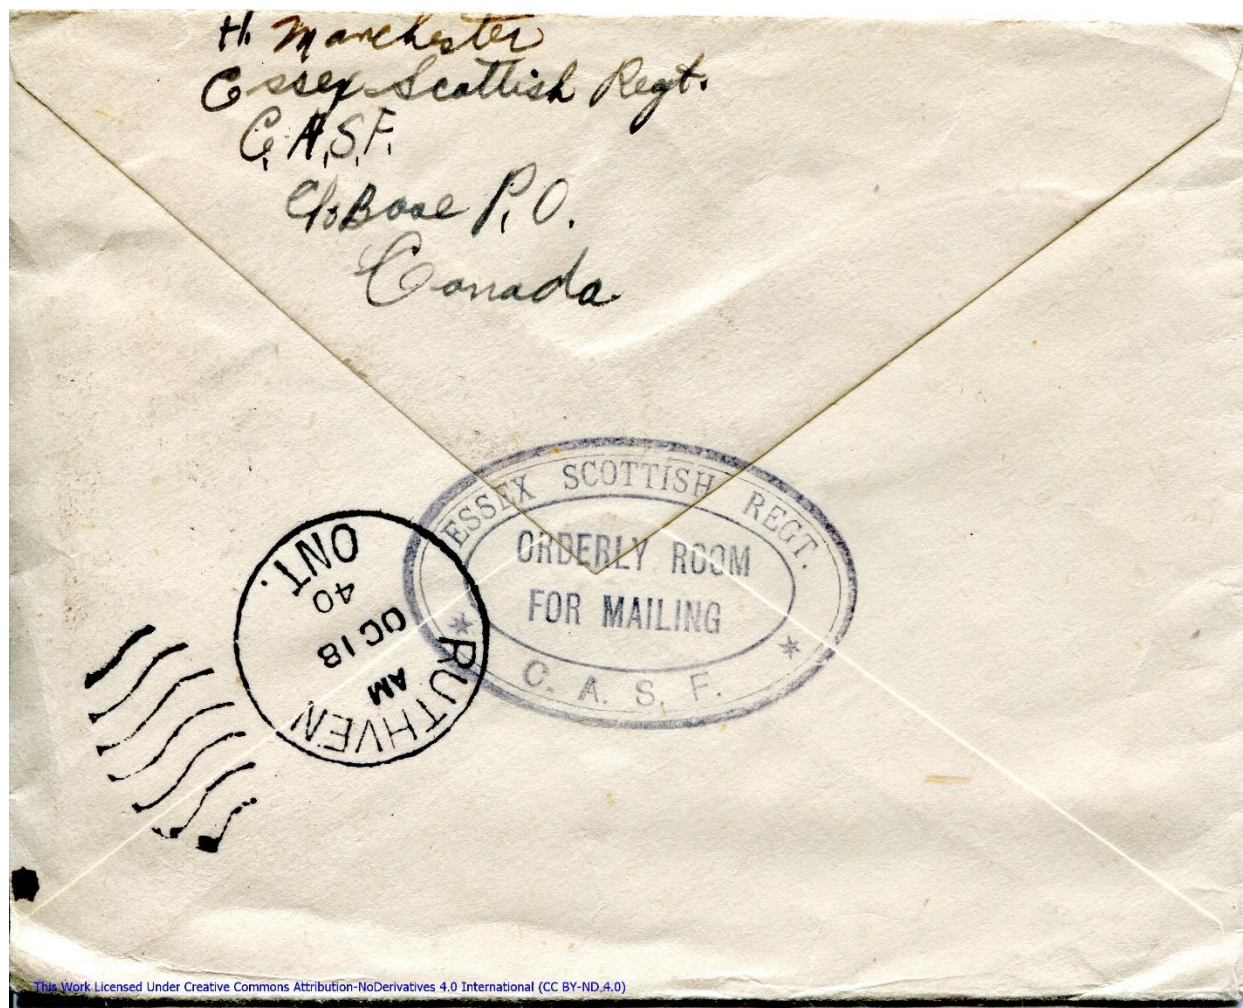 H. Manchester
Essex Scottish Regt.
C.A.S.F.
c/o Base P.O.
Canada
ESSEX SCOTTISH REGT.
ORDERLY ROOM
FOR MAILING
* C. A. S. F. *
RUTHVEN
AM
OC 18
40
ONT.
This Work Licensed Under Creative Commons Attribution-NoDerivatives 4.0 International (CC BY-ND 4.0)